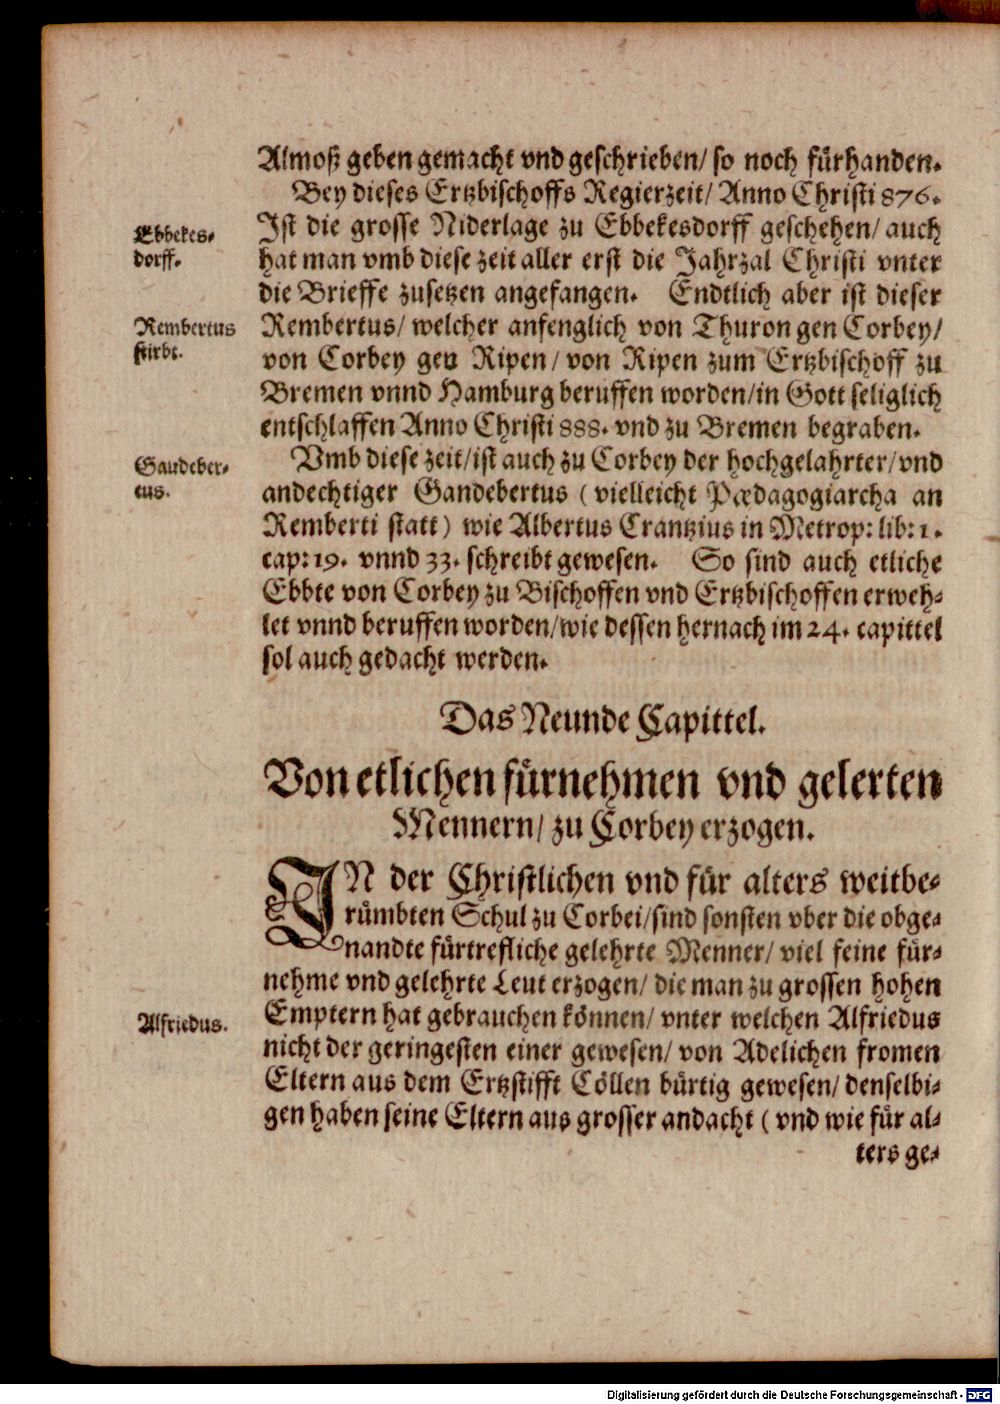 Almoß geben gemacht vnd geschrieben/ so noch fürhanden.
Bey dieses Ertzbischoffs Regierzeit/ Anno Christi 876.
Ebbekes-
dorff.
Ist die grosse Niderlage zu Ebbekesdorff geschehen/ auch
hat man vmb diese zeit aller erst die Jahrzal Christi vnter
die Brieffe zusetzen angefangen. Endtlich aber ist dieser
Rembertus
stirbt.
Rembertus/ welcher anfenglich von Thuron gen Corbey/
von Corbey gen Ripen/ von Ripen zum Ertzbischoff zu
Bremen vnnd Hamburg beruffen worden/in Gott seliglich
entschlaffen Anno Christi 888. vnd zu Bremen begraben.
Gaudeber-
tus.
Vmb diese zeit/ist auch zu Corbey der hochgelahrter/vnd
andechtiger Gandebertus (vielleicht Pædagogiarcha an
Remberti statt) wie Albertus Crantzius in Metrop: lib: 1.
cap: 19. vnnd 33. schreibt gewesen. So sind auch etliche
Ebbte von Corbey zu Bischoffen vnd Ertzbischoffen erweh-
let vnnd beruffen worden/wie dessen hernach im 24. capittel
sol auch gedacht werden.
Das Neunde Capittel.
Von etlichen fürnehmen vnd gelerten
Mennern/ zu Corbey erzogen.
IN der Christlichen vnd für alters weitbe-
rümbten Schul zu Corbei/sind sonsten vber die obge-
nandte fürtrefliche gelehrte Menner/ viel feine für-
nehme vnd gelehrte Leut erzogen/ die man zu grossen hohen
Alfriedus.
Emptern hat gebrauchen können/ vnter welchen Alfriedus
nicht der geringesten einer gewesen/ von Adelichen fromen
Eltern aus dem Ertzstifft Cöllen bürtig gewesen/ denselbi-
gen haben seine Eltern aus grosser andacht (vnd wie für al-
ters ge-
Digitalisierung gefördert durch die Deutsche Forschungsgemeinschaft - DFG